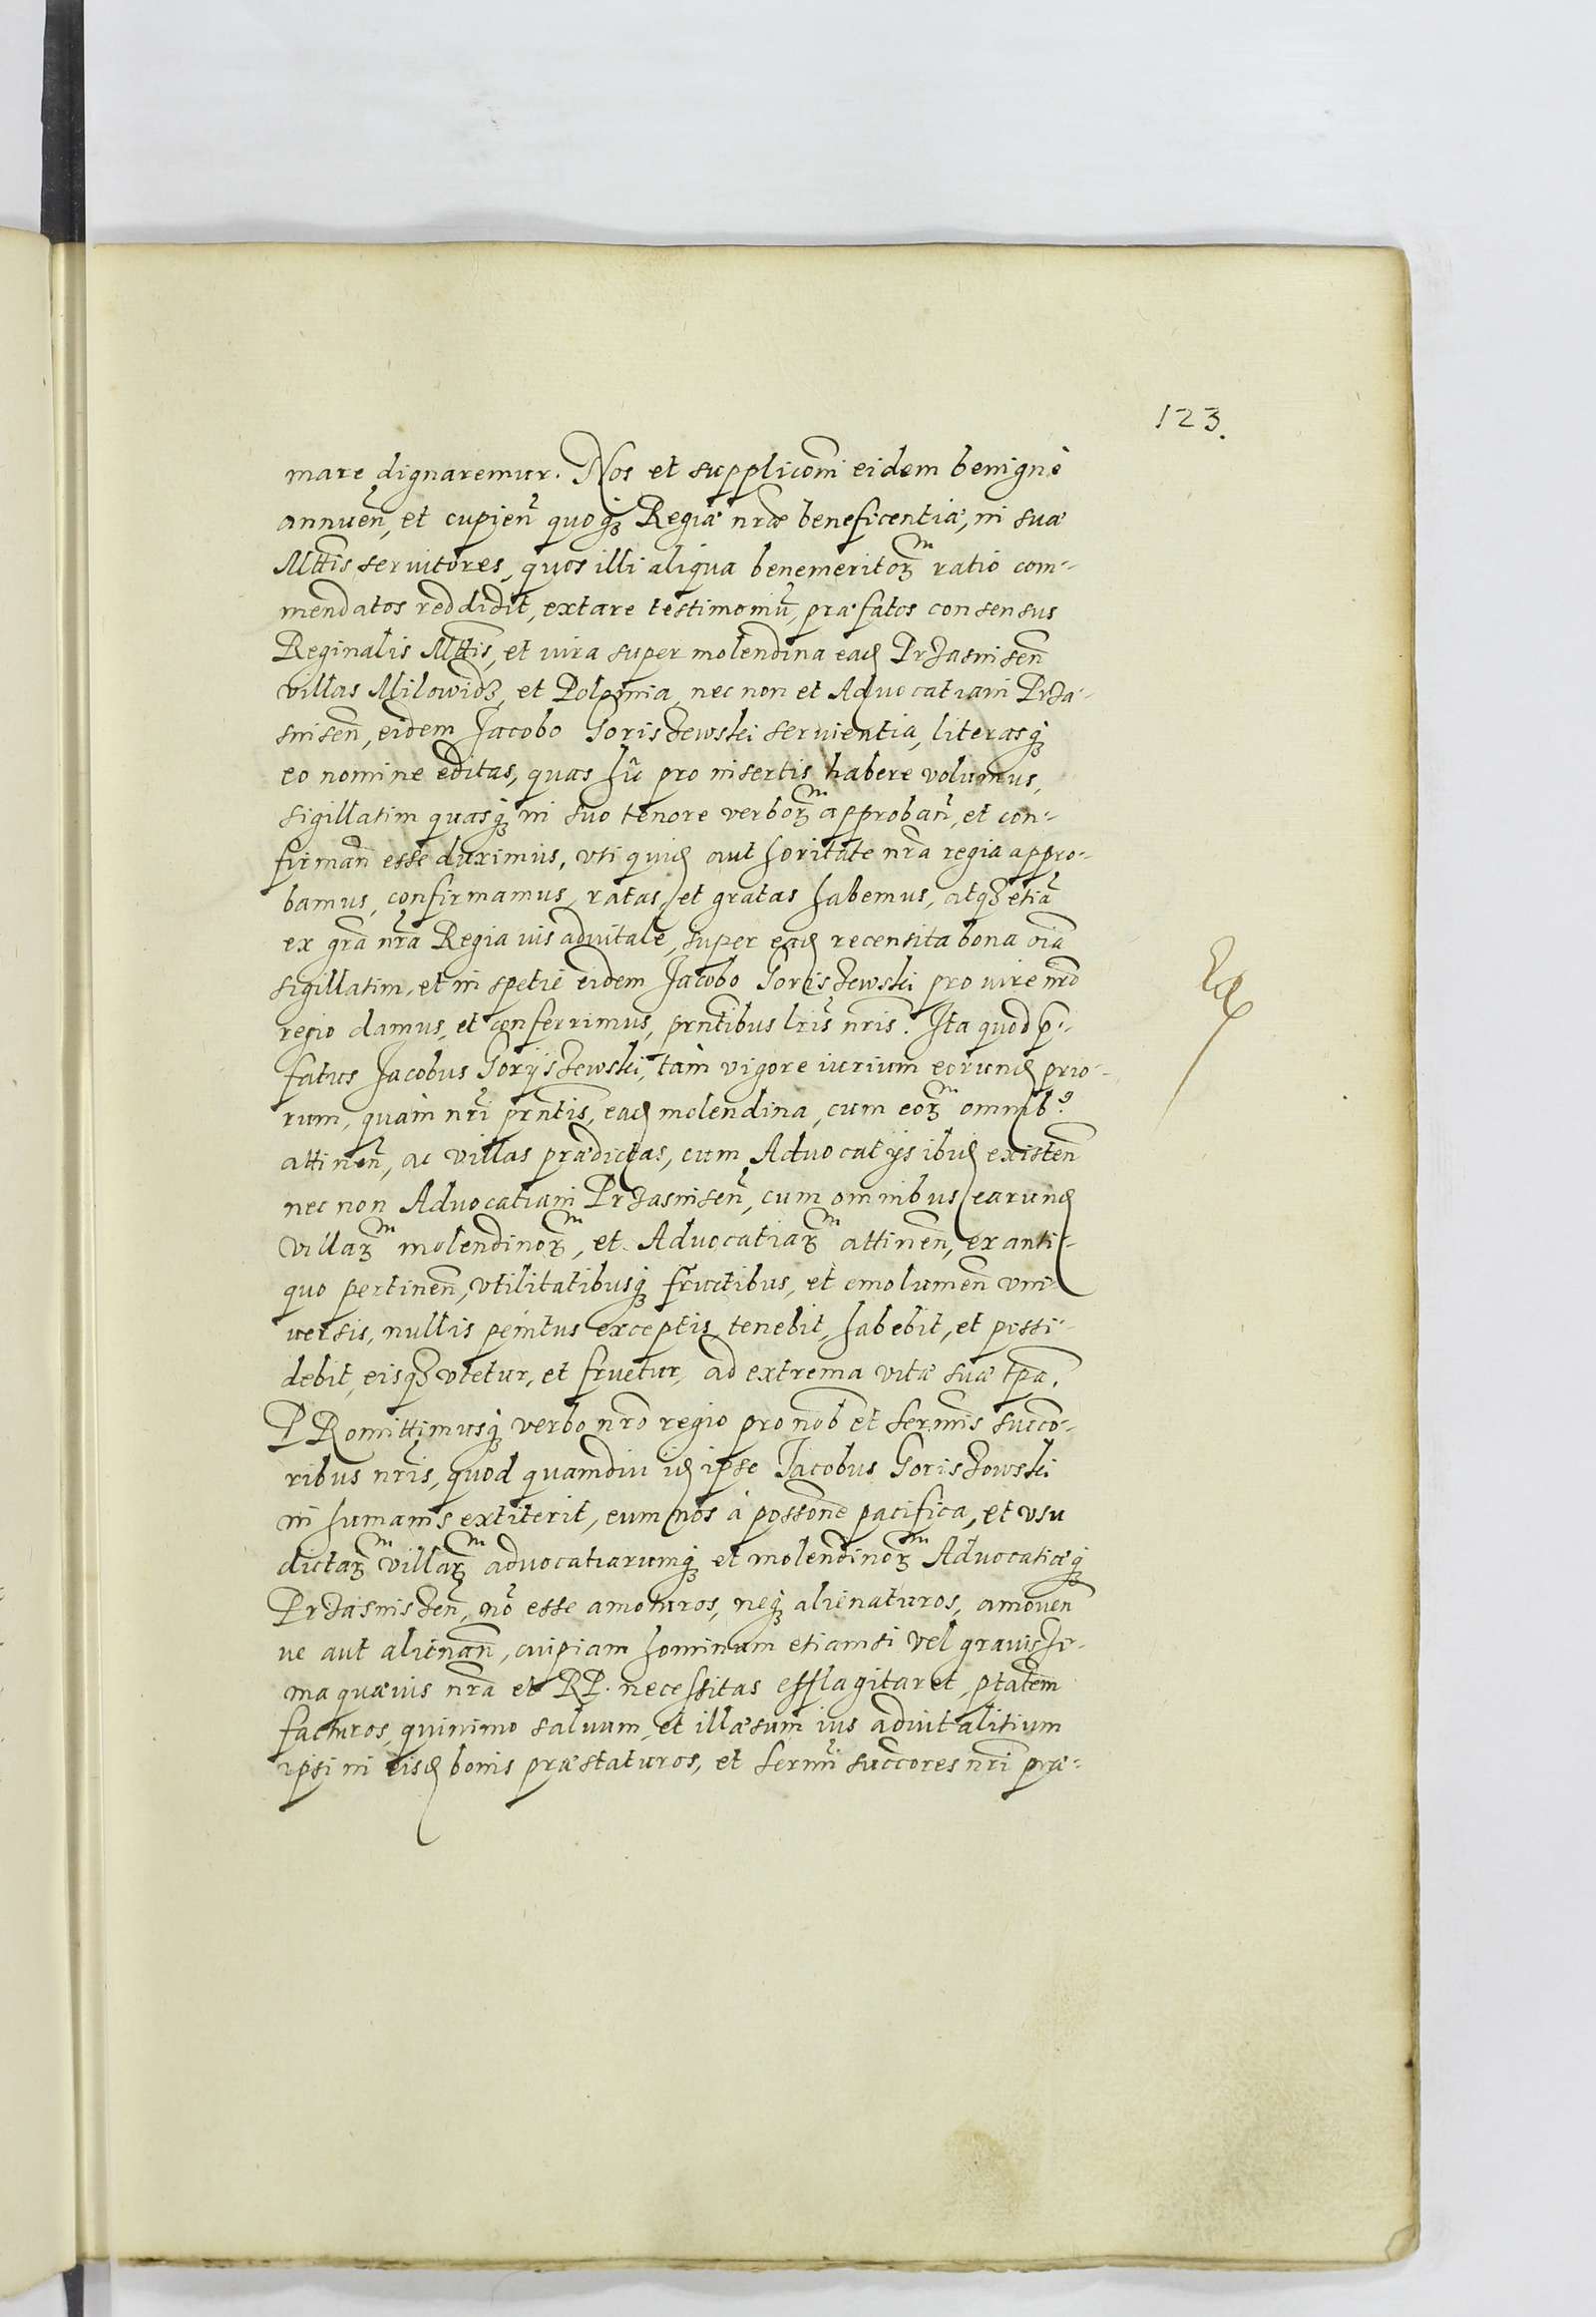 123.
mare dignaremur. Nos et suppliconi eidem benignè
annuen̄, et cupien̄ quoq́ꝫ Regiæ nrāe beneficentiæ, in suæ
Mttis seruitores, quos illi aliqua benemeritoꝝᵐ ratio com-
mendatos reddidit, extare testimoniū, præfatos consensus
Reginalis Mttis, et iura super molendina eaꝗ Przasnisen̄
villas Milowidz, et Polonia, nec non et Aduocatiam Prza-
snisen̄, eidem Jacobo Goriszewski seruientia, literasq́ꝫ
eo nomine editas, quas hīc pro insertis habere volumus,
sigillatim quasq́ꝫ in suo tenore verboꝝᵐ approban̄, et con-
firman̄ esse duximus, vti quiꝗ authoritate nrā regia appro-
bamus, confirmamus, ratas, et gratas habemus, atqꝫ etiā
ex grā nrā Regia ius aduitale, super eaꝗ recensita bona oīa
sigillatim, et in spetie eidem Jacobo Goriszewski pro iure nrō
regio damus, et conferrimus, prntibus lrīs nrīs. Ita quod p̄-
fatus Jacobus Gorijszewski, tam vigore iurium eorunꝗ prio-
rum, quàm nrī prntis, eaꝗ molendina, cum eoꝝᵐ omnibꝰ
attinen̄, ac villas prædictas, cum Aduocatijs ibiꝗ existen̄
nec non Aduocatiam Przasnisen̄, cum omnibus earunꝗ
villaꝝᵐ molendinoꝝᵐ, et Aduocatiaꝝᵐ attinen̄, ex anti-
quo pertinen̄, vtilitatibusq́ꝫ fructibus, et emolumen̄ vni-
uersis, nullis penitus exceptis tenebit, habebit, et possi-
debit, eisqꝫ vtetur, et fruetur, ad extrema vitæ suæ tp̄a.
PRomittimusq́ꝫ verbo nrō regio pro nob̄ et sermīs succo-
ribus nrīs, quod quamdiu iꝗ ipse Jacobus Goriszowski
in humanis extiterit, eum nos à possone pacifica, et vsu
dictaꝝᵐ villaꝝᵐ aduocatiarumq́ꝫ et molendinoꝝᵐ Aduocatiæq́ꝫ
Przasniszen̄, nō esse amoturos, neq́ꝫ alienaturos, amouen̄
ue aut alienan̄, cuipiam hominum etiamsi vel grauissi-
ma quæuis nrā et RP. necessitas efflagitaret, ptatem
facturos, quinimo saluum, et illæsum ius aduitalitium
ipsi in eisꝗ bonis præstaturos, et sermī succores nrī præ-